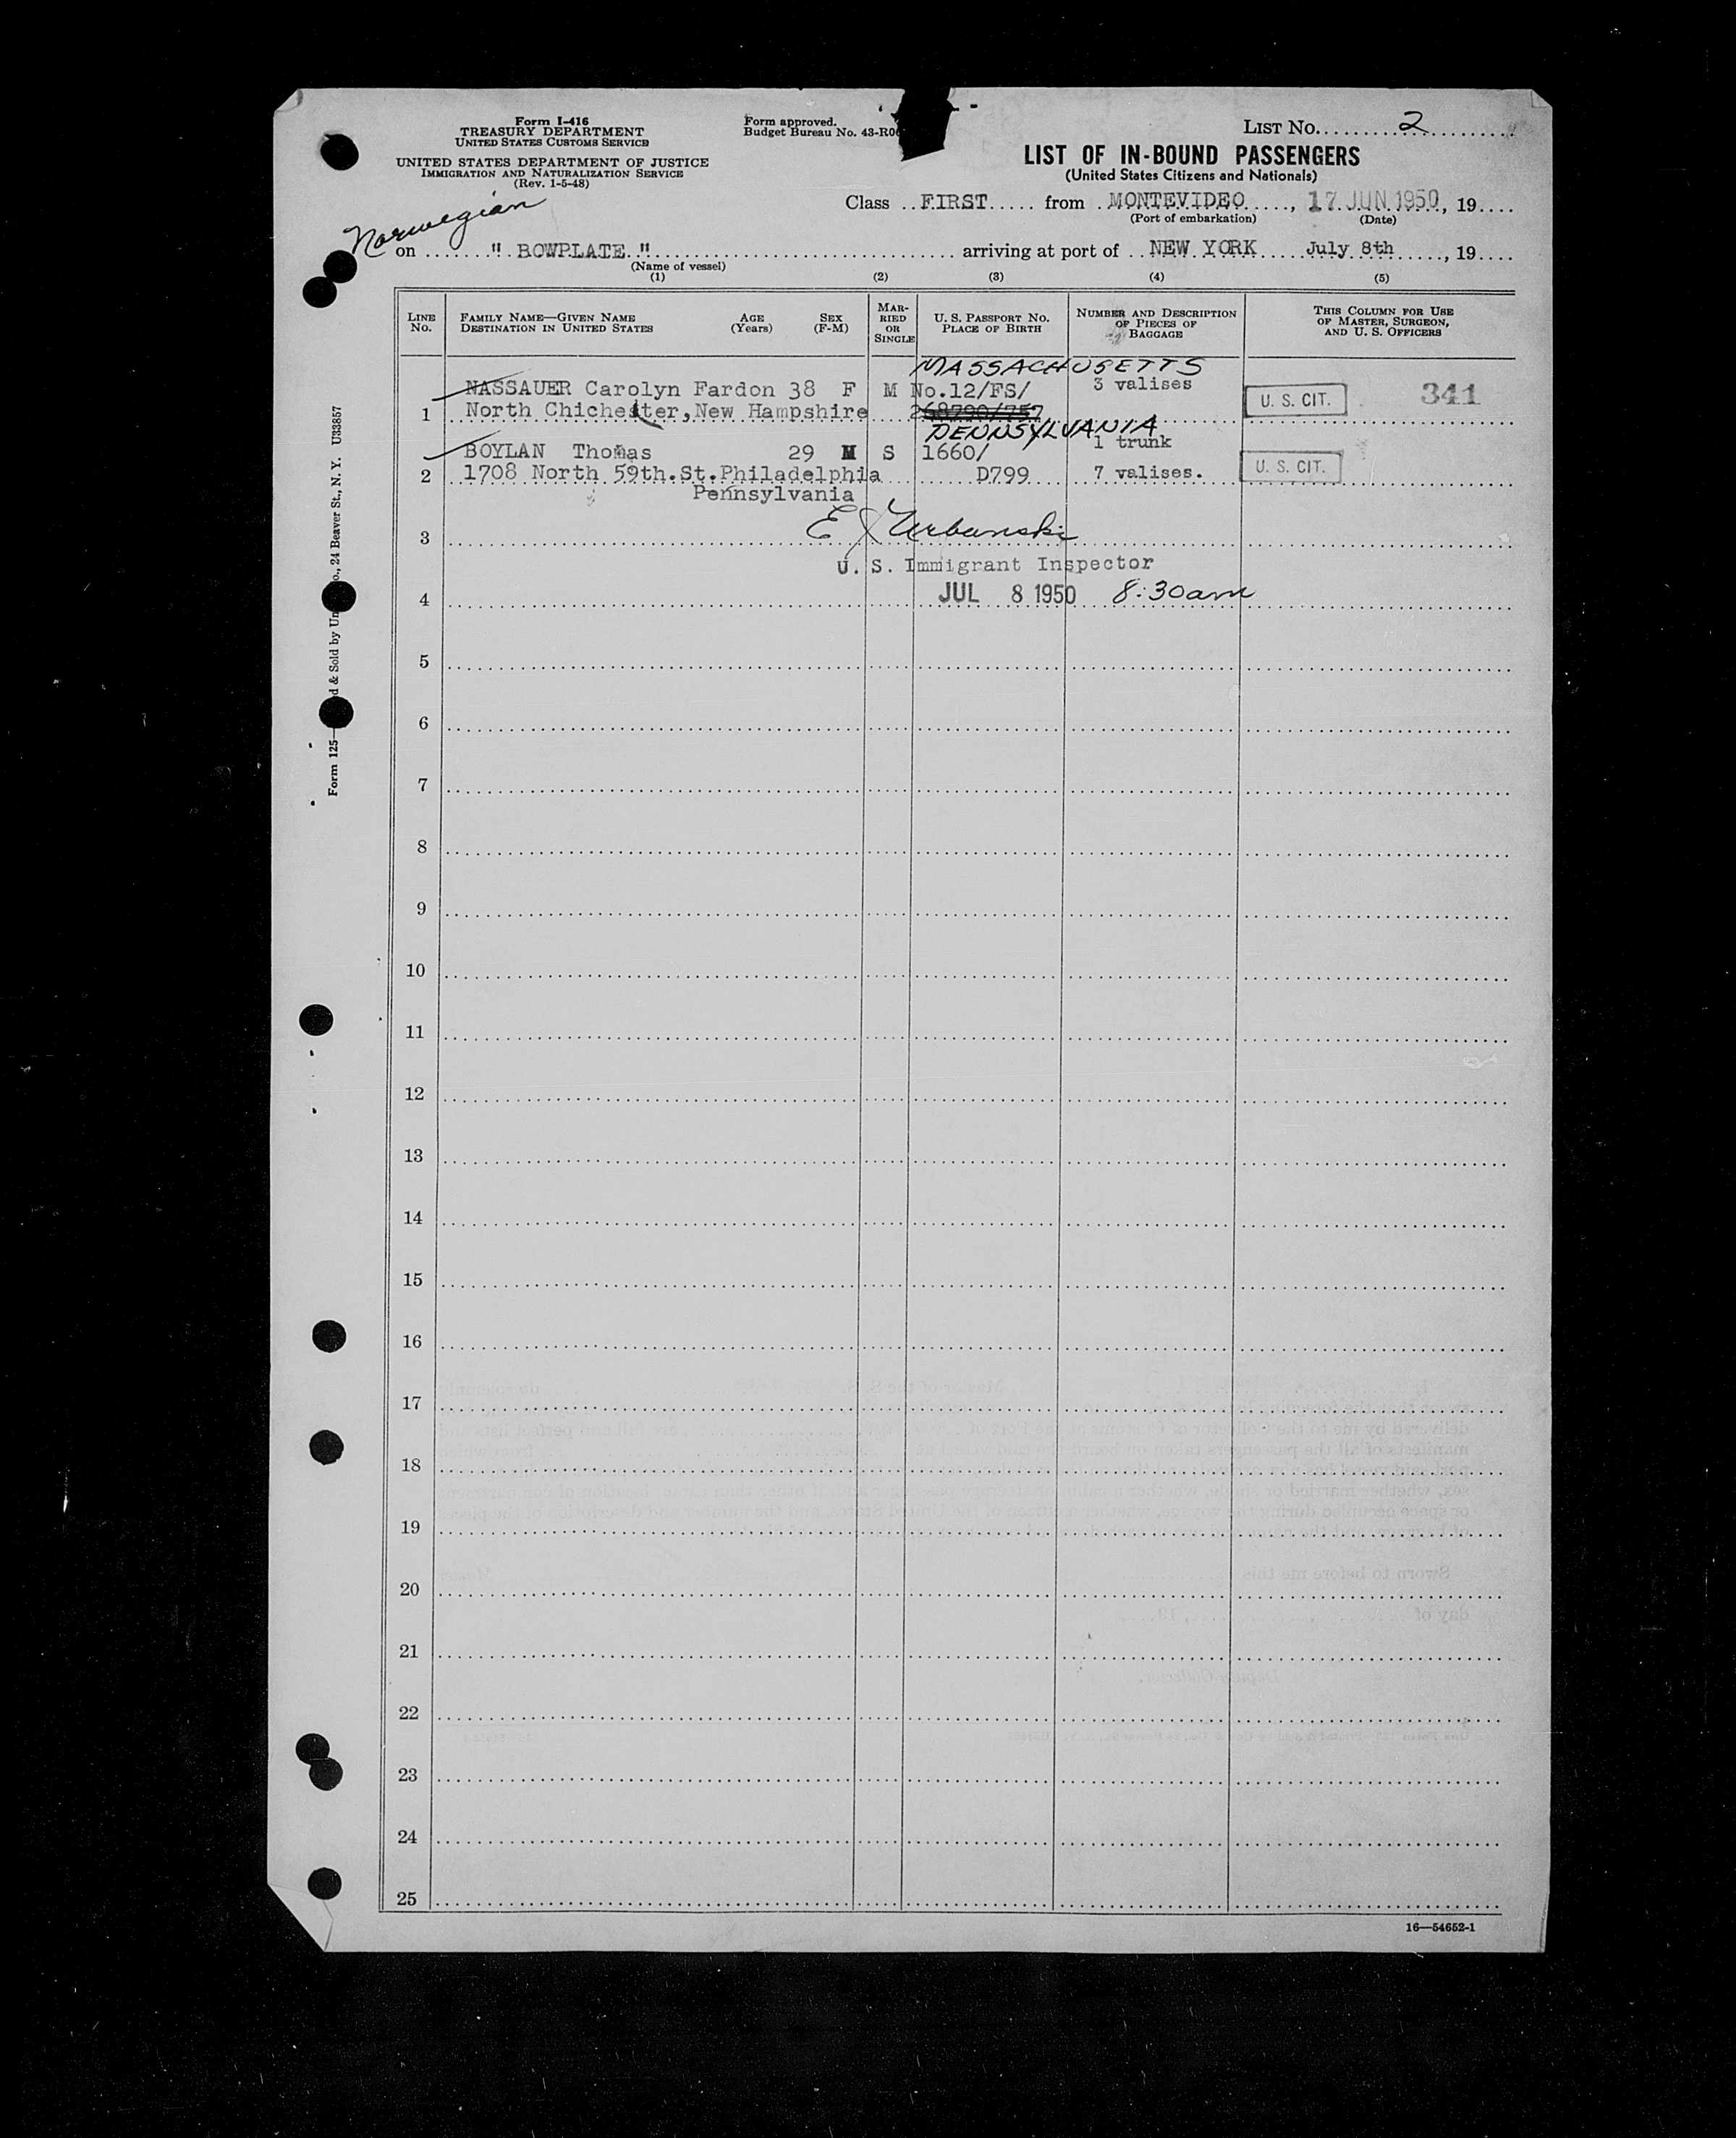 Form I-416
TREASURY DEPARTMENT
UNITED STATES CUSTOMS SERVICE
UNITED STATES DEPARTMENT OF JUSTICE
IMMIGRATION AND NATURALIZATION SERVICE
(Rev. 1-5-48)
Form approved.
Budget Bureau No. 43-R0
LIST NO. 2
LIST OF IN-BOUND PASSENGERS
(United States Citizens and Nationals)
Class FIRST from MONTEVIDEO, 17 JUN 1950, 19
(Port of embarkation) (Date)
Norwegian
on " BOWPLATE " arriving at port of NEW YORK July 8th, 19
(Name of vessel)
(1) (2) (3) (4) (5)
LINE No.
FAMILY NAME—GIVEN NAME AGE SEX
DESTINATION IN UNITED STATES (Years) (F-M)
MARRIED OR SINGLE
U. S. PASSPORT NO.
PLACE OF BIRTH
NUMBER AND DESCRIPTION OF PIECES OF BAGGAGE
THIS COLUMN FOR USE OF MASTER, SURGEON, AND U. S. OFFICERS
MASSACHUSETTS
NASSAUER Carolyn Fardon 38 F M No.12/FS/ 3 valises
1 North Chichester, New Hampshire U. S. CIT. 341
PENNSYLVANIA
BOYLAN Thomas 29 M S 1660/ 1 trunk
2 1708 North 59th.St.Philadelphia D799 7 valises. U. S. CIT.
Pennsylvania
3 E J Urbanski
U. S. Immigrant Inspector
4 JUL 8 1950 8:30am
5
6
7
8
9
10
11
12
13
14
15
16
17
18
19
20
21
22
23
24
25
16—54652-1
Form 125— d & Sold by Un o., 24 Beaver St., N. Y. U33857